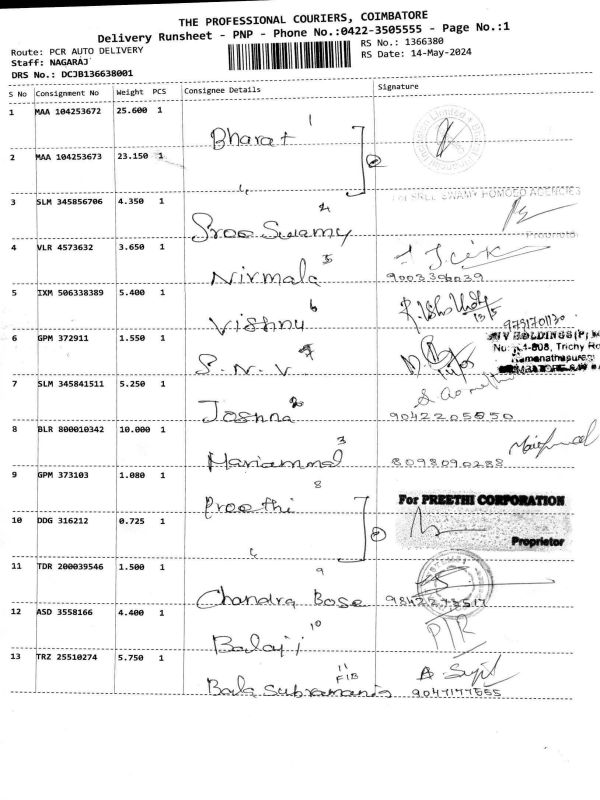 THE PROFESSIONAL COURIERS, COIMBATORE
Delivery Runsheet - PNP - Phone No.:0422-3505555 - Page No.:1
Route: PCR AUTO DELIVERY
RS No.: 1366380
Staff: NAGARAJ
RS Date: 14-May-2024
DRS No.: DCJB136638001
S No Consignment No Weight PCS Consignee Details Signature
1 MAA 104253672 25.600 1 Bharat 1
2 MAA 104253673 23.150 1 2
3 SLM 345856706 4.350 1 Sree Swamy 4
For SREE SWAMY HOMOEO AGENCIES
Proprietor
4 VLR 4573632 3.650 1 Nirmala 5
5 IXM 506338389 5.400 1 Vishnu 6
9751701130
6 GPM 372911 1.550 1 S.N.V 7
HOLDINGS (P)
Trichy Ro
Ramanathapuram
7 SLM 345841511 5.250 1 Joshna 2 9042205550
8 BLR 800010342 10.000 1 Mariammal 3 8098090288
9 GPM 373103 1.080 1 Preethi 8
For PREETHI CORPORATION
10 DDG 316212 0.725 1 2
Proprietor
11 TDR 200039546 1.500 1 Chandra Bose 9
12 ASD 3558166 4.400 1 Balaji 10
13 TRZ 25510274 5.750 1 Bala Subramanis 11
FIB
9047177555